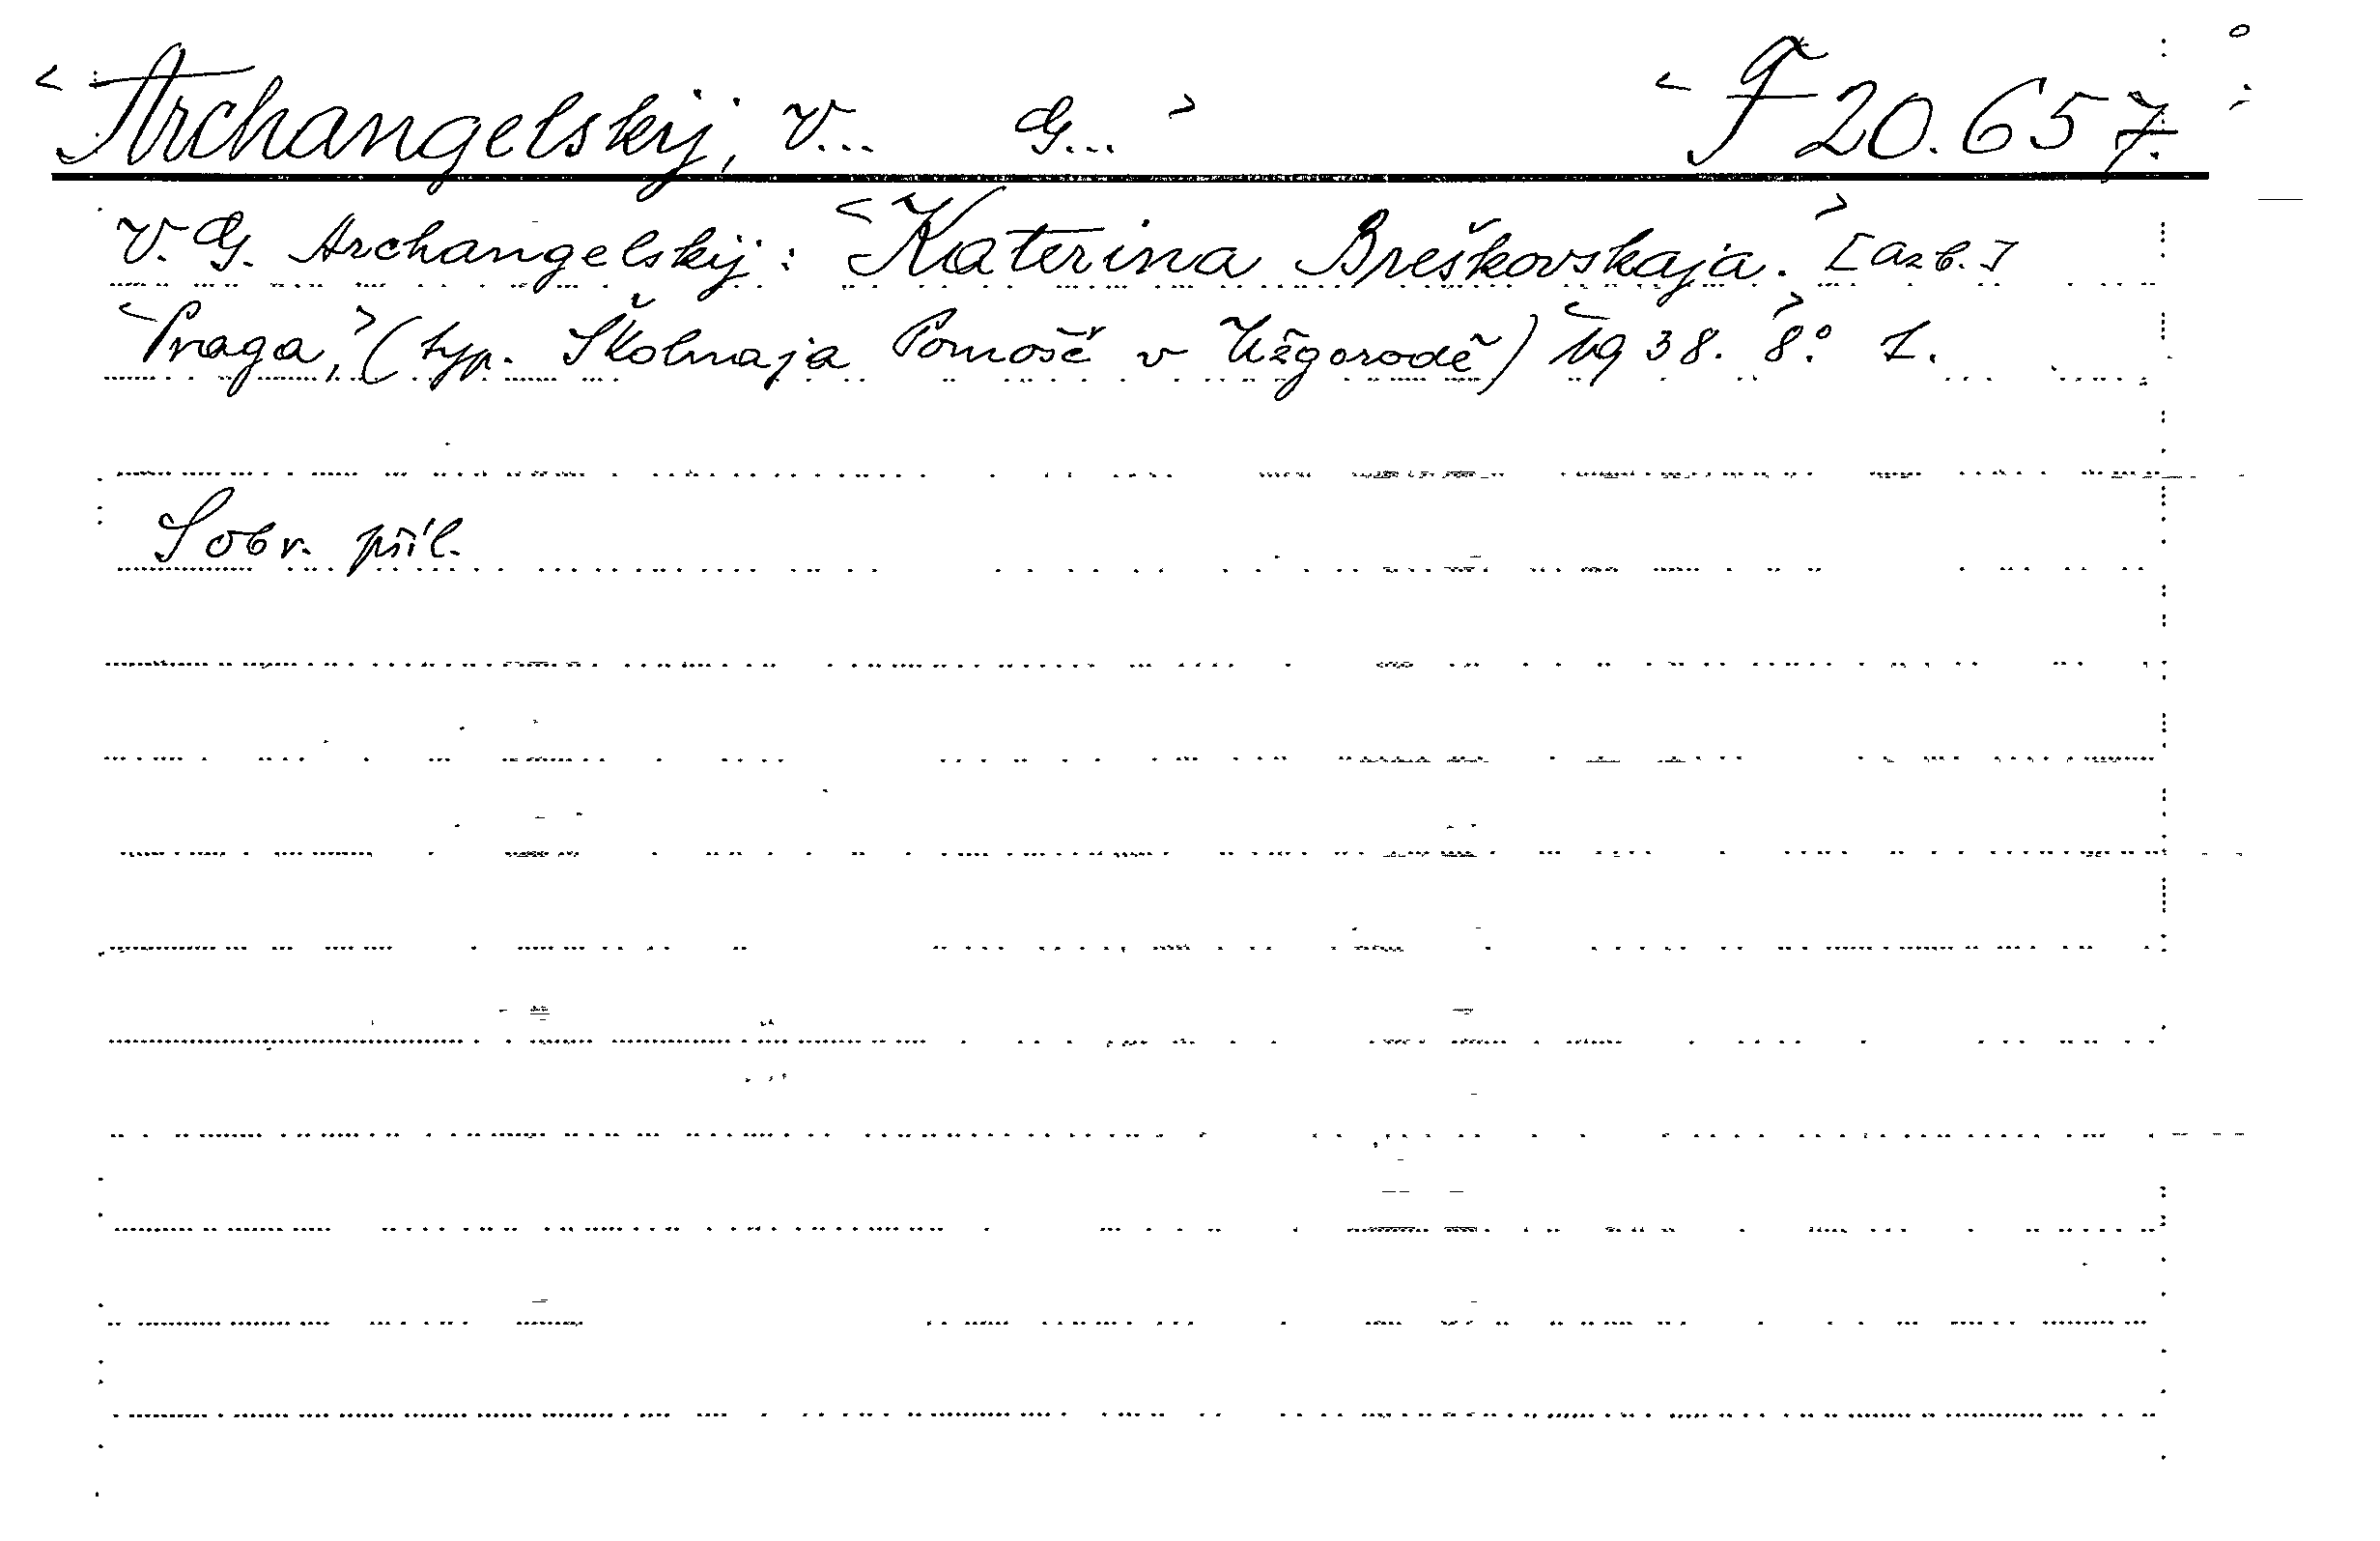 <Archangelskij, V... G...> <F 20.657.
V. G. Archangelskij: <Katerina Breškovskaja.> [azb.]
<Praga,> (typ. Školnaja Pomošč v Užgorodě) <1938.> 8.° 1.
S obr. příl.